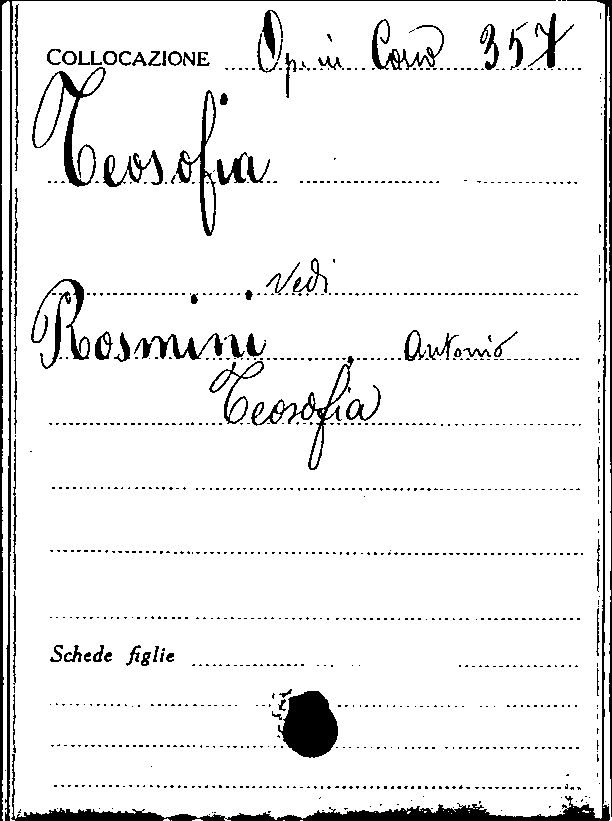 COLLOCAZIONE Op. in Corso 357
Teosofia
Vedi
Rosmini, Antonio
Teosofia
Schede figlie